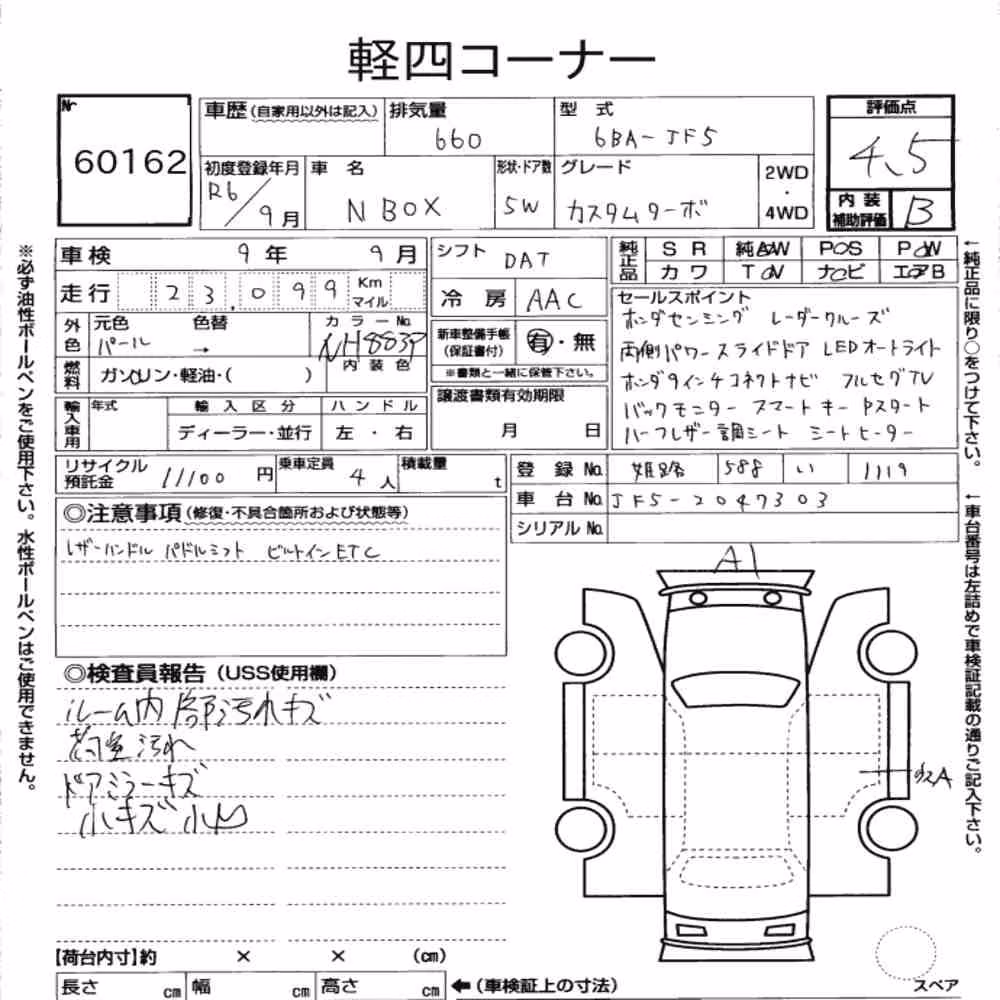 軽四コーナー
Nr 60162
車歴 (自家用以外は記入)
排気量 660
型式 6BA-JF5
評価点 4.5
初度登録年月 R6/9月
車名 N BOX
形状・ドア数 5W
グレード カスタムターボ
2WD ・ 4WD
内装補助評価 B
車検 9年 9月
シフト DAT
純正品 SR 純AW PS PW
カワ TV ナビ エアB
走行 23,099 Km マイル
冷房 AAC
外色 元色 パール 色替 →
カラーNo. NH883P
内装色
新車整備手帳(保証書付) 有・無
※書類と一緒に保管下さい。
燃料 ガソリン・軽油・( )
譲渡書類有効期限 月 日
輸入車用 年式 輸入区分 ハンドル
ディーラー・並行 左・右
セールスポイント
ホンダセンシング レーダークルーズ
両側パワースライドドア LEDオートライト
ホンダ9インチコネクトナビ フルセグTV
バックモニター スマートキー Pスタート
ハーフレザー調シート シートヒーター
リサイクル預託金 11100円
乗車定員 4人
積載量 t
登録No. 姫路 588 い 1119
車台No. JF5-2047303
シリアルNo.
◎注意事項(修復・不具合箇所および状態等)
レザーハンドル パドルシフト ビルトインETC
◎検査員報告(USS使用欄)
ルーム内 汚れキズ
荷室汚れ
ドアミラーキズ
小キズ 小凹
A1
A
【荷台内寸】約 × × (cm)
長さ cm 幅 cm 高さ cm
←(車検証上の寸法)
スペア
※必ず油性ボールペンをご使用下さい。水性ボールペンはご使用できません。
←純正品に限り○をつけて下さい。
←車台番号は左詰めで車検証記載の通りご記入下さい。